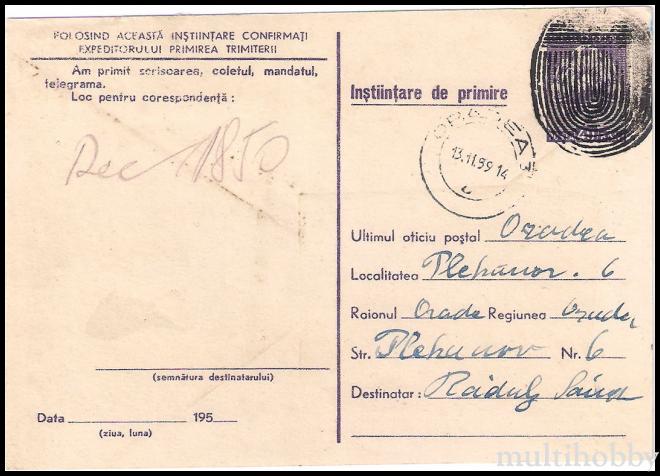 FOLOSIND ACEASTĂ INȘTIINȚARE CONFIRMAȚI
EXPEDITORULUI PRIMIREA TRIMITERII
Am primit scrisoarea, coletul, mandatul,
telegrama.
Loc pentru corespondență :
Rec 1850
(semnătura destinatarului)
Data 195
(ziua, luna)
Inștiințare de primire
ORADEA 3
13.11.59 14
Ultimul oficiu poștal Oradea
Localitatea Plehanov . 6
Raionul Orade Regiunea Oradea
Str. Plehanov Nr. 6
Destinatar :
multihobby